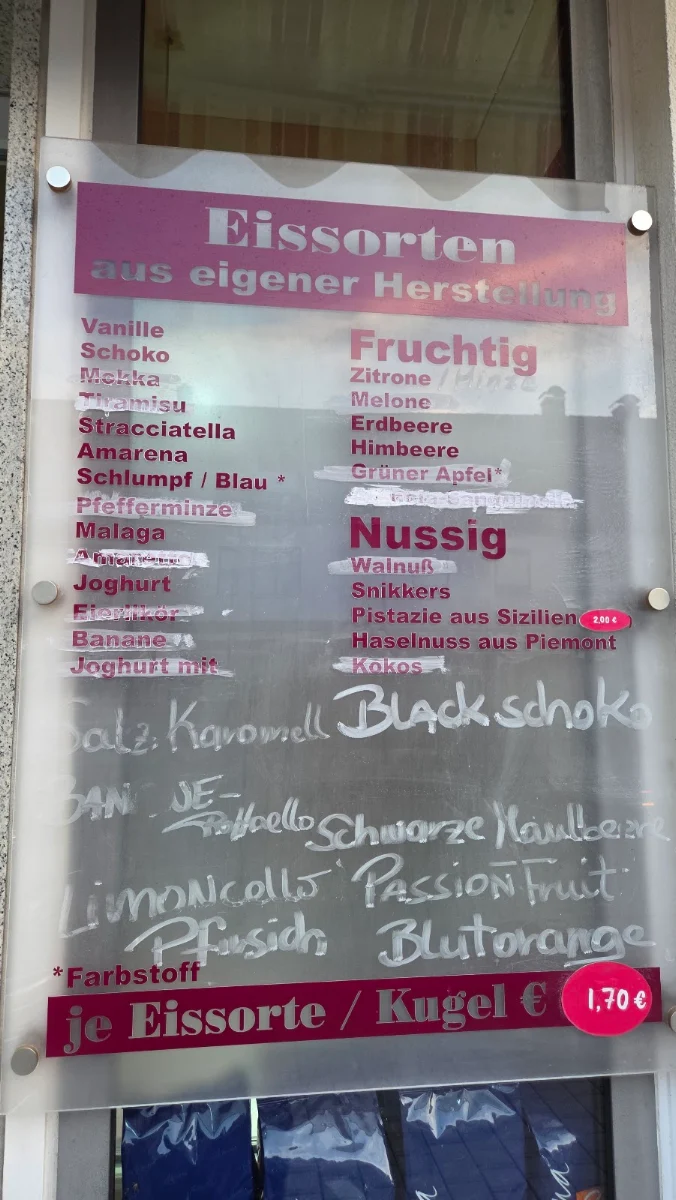 Eissorten
aus eigener Herstellung
Vanille
Schoko
Mokka
Tiramisu
Stracciatella
Amarena
Schlumpf / Blau *
Pfefferminze
Malaga
Amaretto
Joghurt
Eierlikör
Banane
Joghurt mit
Fruchtig
Zitrone
Melone
Erdbeere
Himbeere
Grüner Apfel*
Nussig
Walnuß
Snikkers
Pistazie aus Sizilien 2,00 €
Haselnuss aus Piemont
Kokos
Salz. Karamell
Black schoko
Raffaello
Schwarze Maulbeere
Limoncello
Passion Fruit
Pfirsich
Blutorange
*Farbstoff
je Eissorte / Kugel € 1,70 €